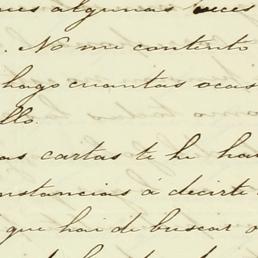 ues algunas veces
. No me contento
hago cuantas ocas
llo.
as cartas te he ha
nstancias á decirte
que hai de buscar